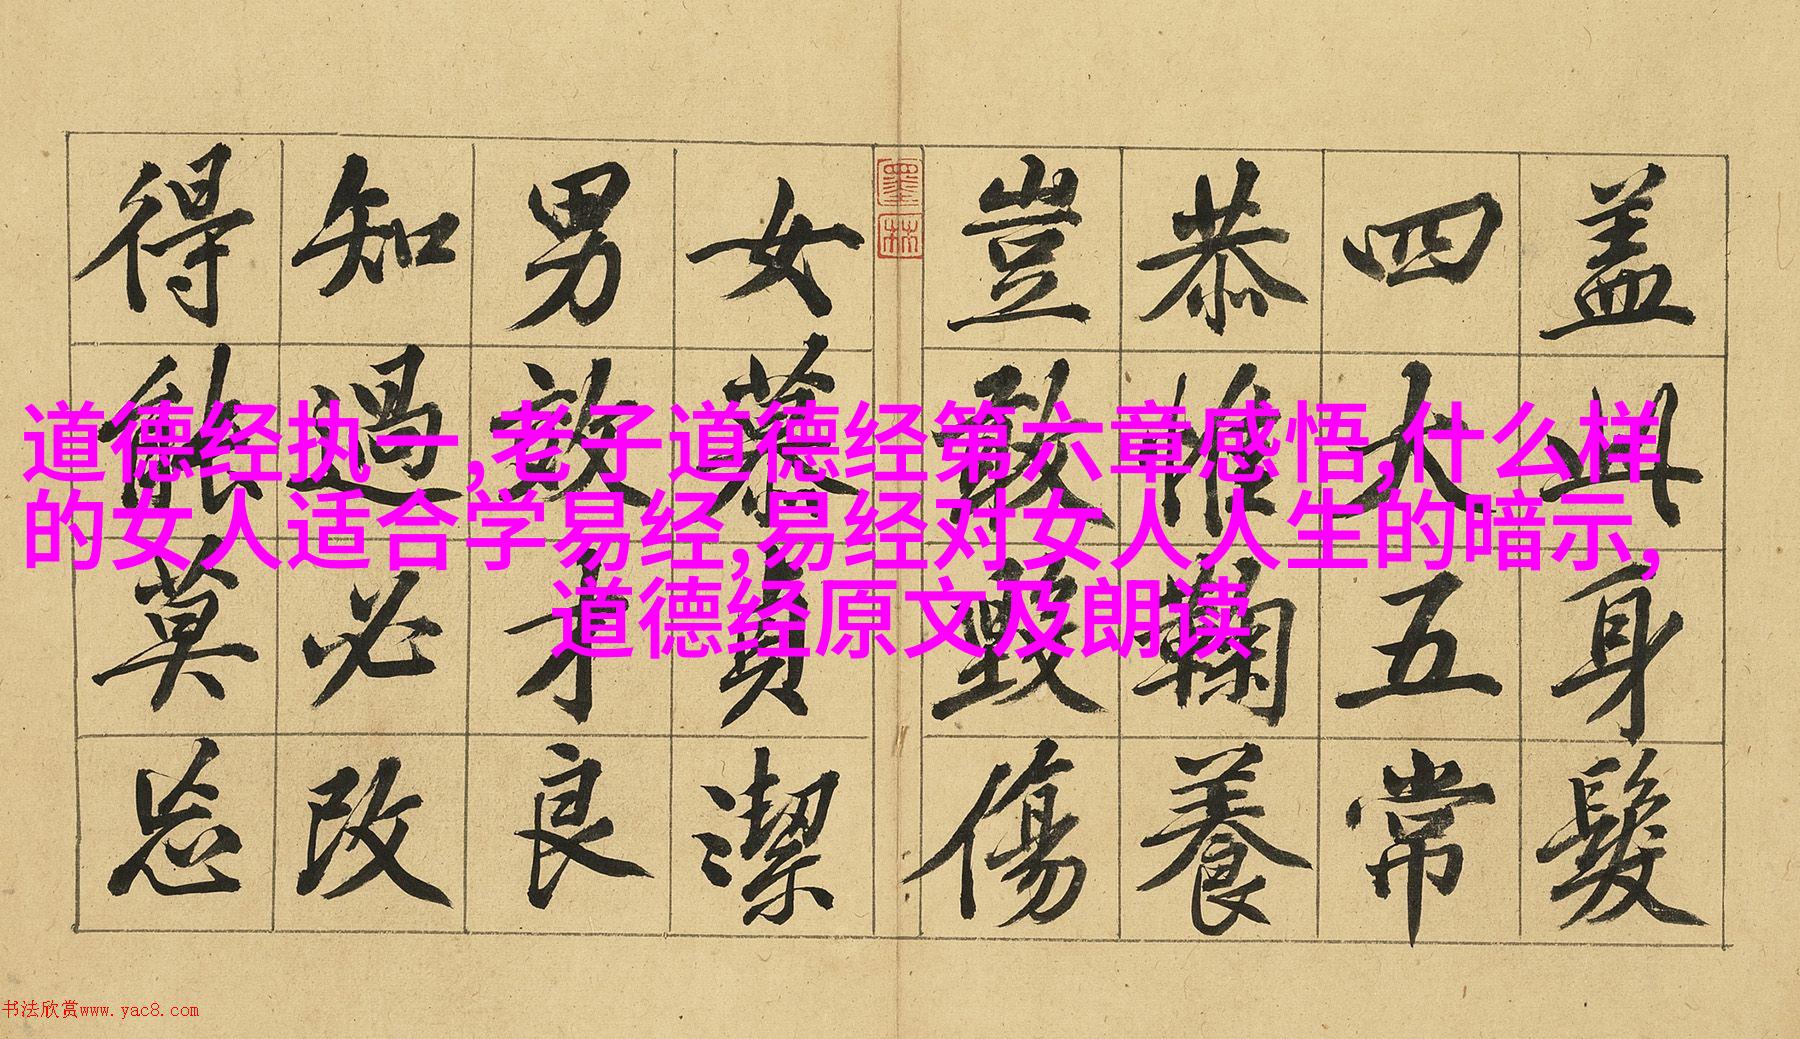 盖此身髮
四大五常
恭惟鞠養
豈敢毀傷
墨林
女慕貞潔
男效才良
知過必改
得能莫忘
道德经执一,老子道德经第六章感悟,什么样
的女人适合学易经,易经对女人人生的暗示,
道德经原文及朗读
书法欣赏www.yac8.com